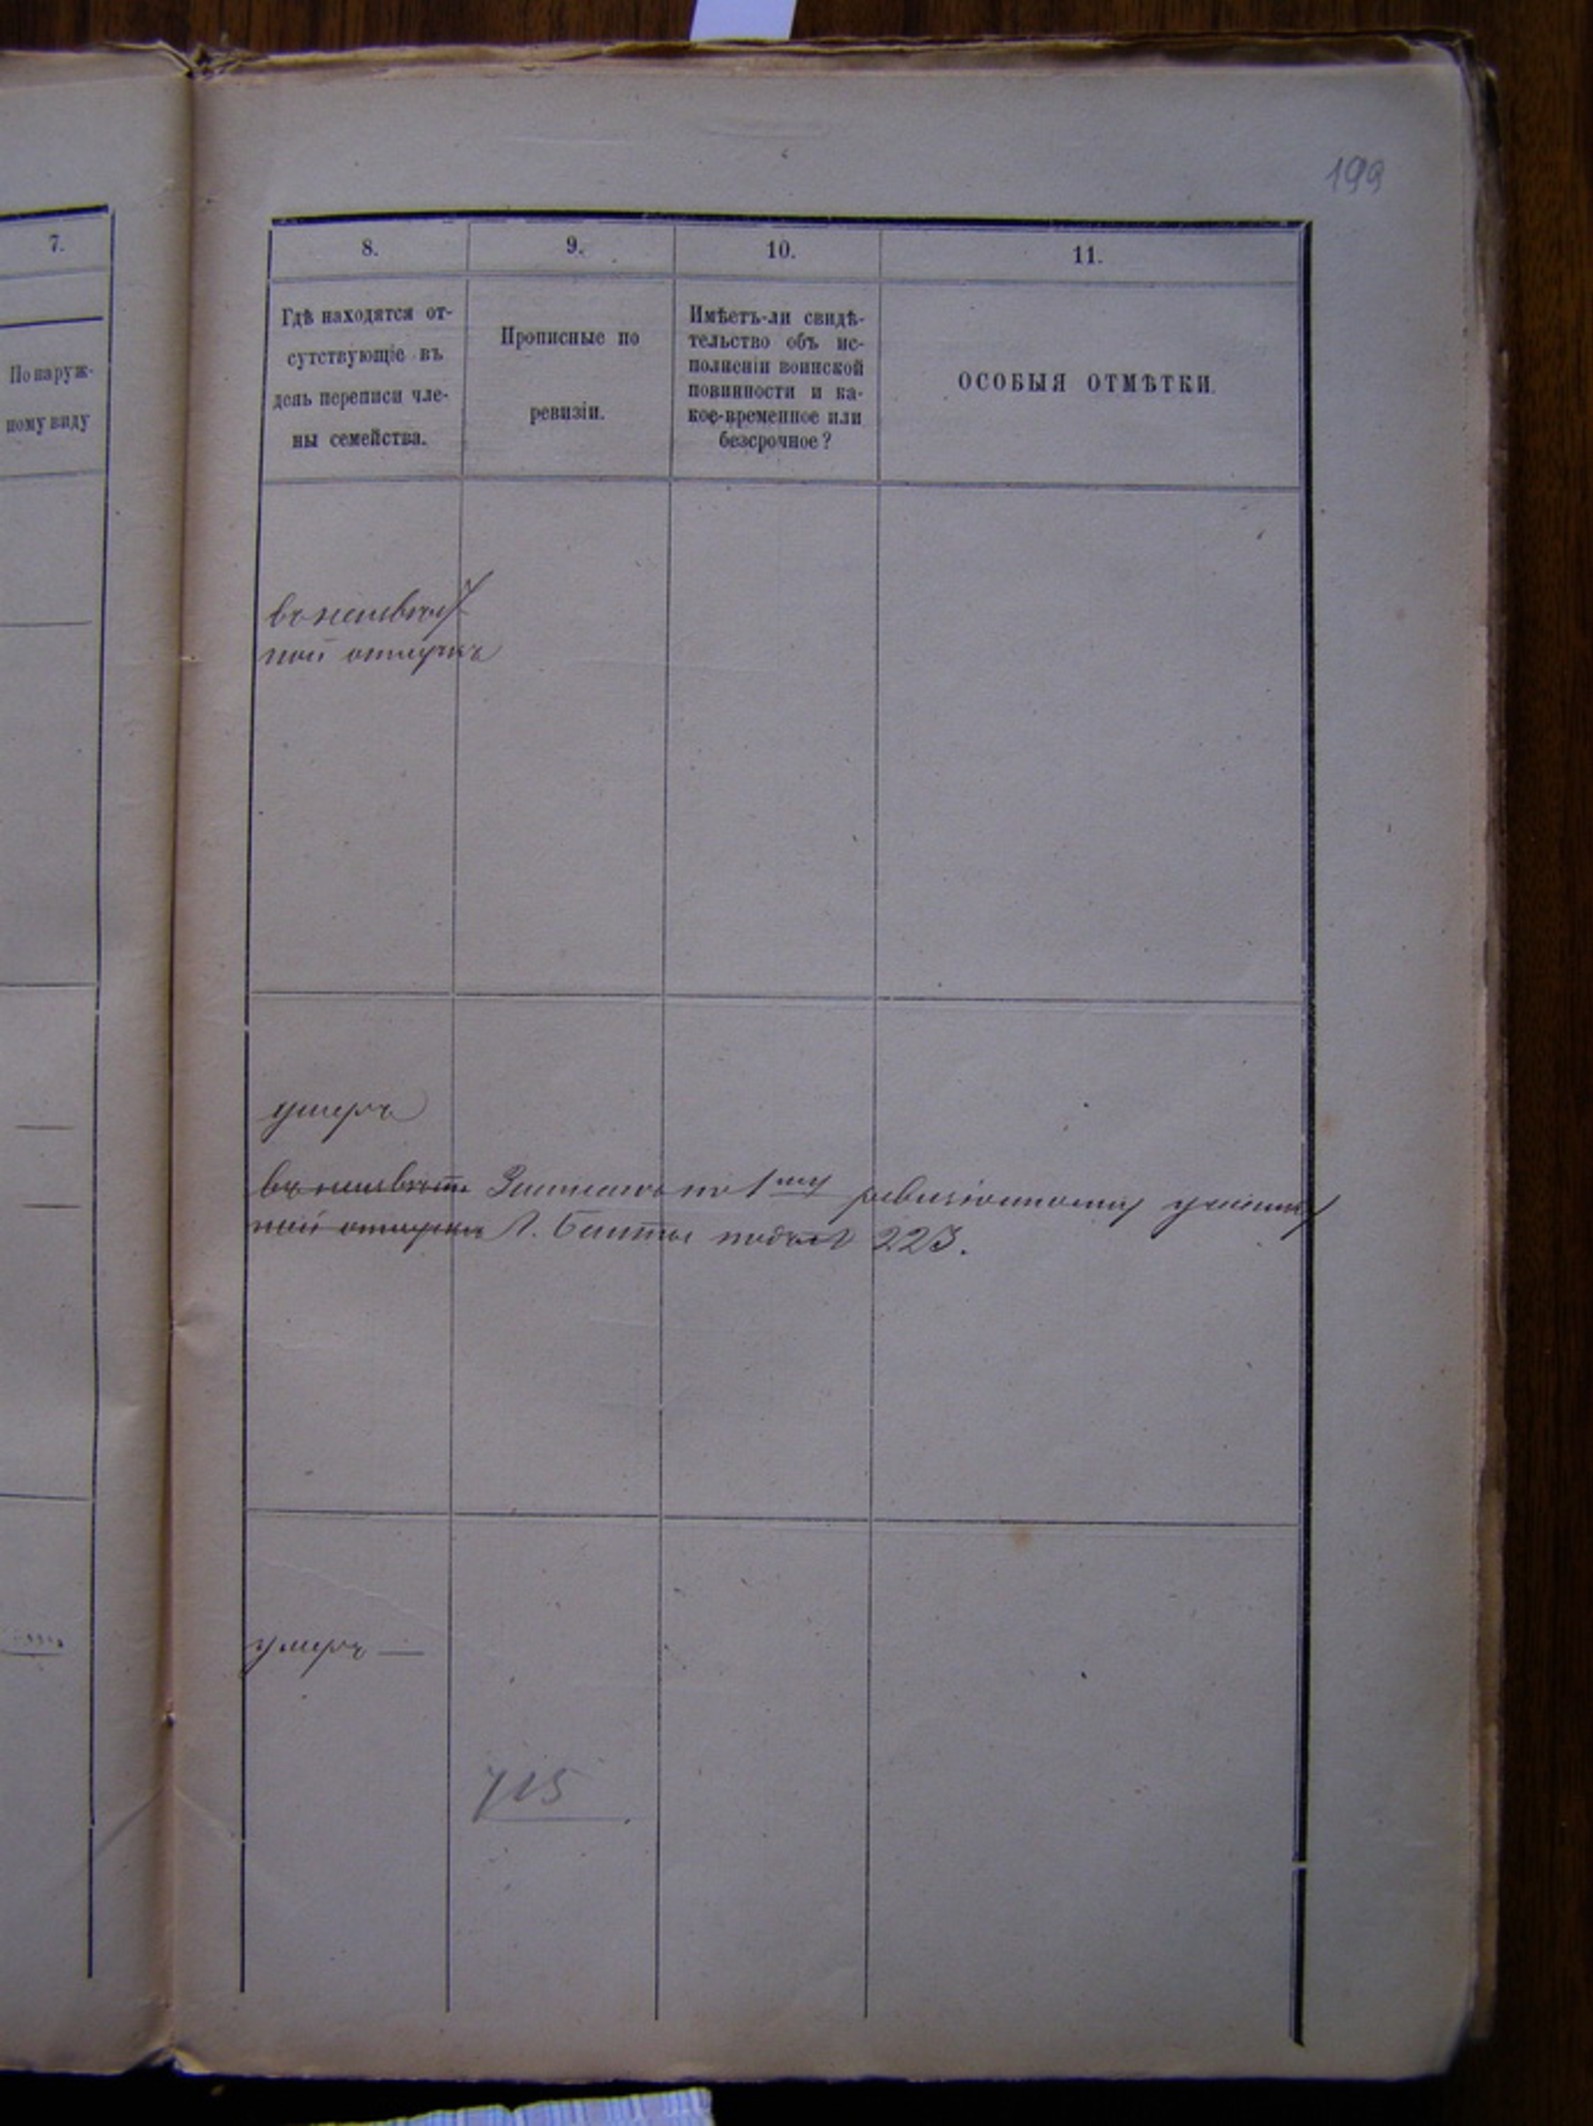 199
7.
По наруж-
ному виду
8.
Гдѣ находятся от-
сутствующіе въ
день переписи чле-
ны семейства.
9.
Прописные по
ревизіи.
10.
Имѣетъ-ли свидѣ-
тельство объ ис-
полненіи воинской
повинности и ка-
кое-временное или
безсрочное?
11.
ОСОБЫЯ ОТМѢТКИ.
въ неизвѣст
ной отлучкѣ
умеръ
въ неизвѣст Записанъ по 1му ревизіонному участку
ной отлучкѣ Л. подъ № 223.
умеръ —
715